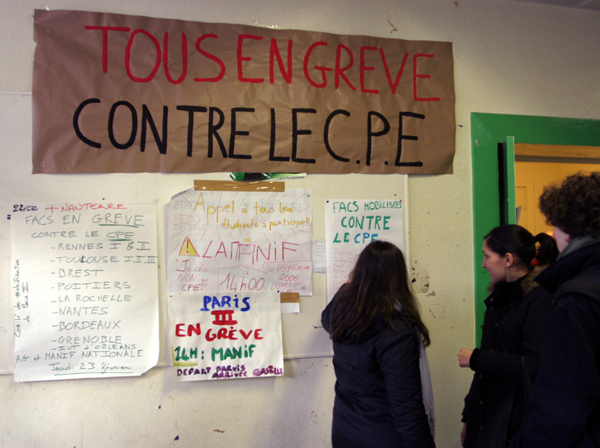 TOUS EN GREVE
CONTRE LE C.P.E
+ NANTERRE
FACS EN GRÈVE
CONTRE LE CPE
- RENNES I & II
- TOULOUSE I.II.III
- BREST
- POITIERS
- LA ROCHELLE
- NANTES
- BORDEAUX
- GRENOBLE
- D'ORLEANS
AG et MANIF NATIONALE
Jeudi 23 février
Appel à tous les
étudiants à participer
LA MANIF
14h00
PARIS
III
EN GRÈVE
14H : MANIF
DEPART PARVIS
ARRIVÉE BASTILLE
FACS MOBILISÉES
CONTRE
LE CPE